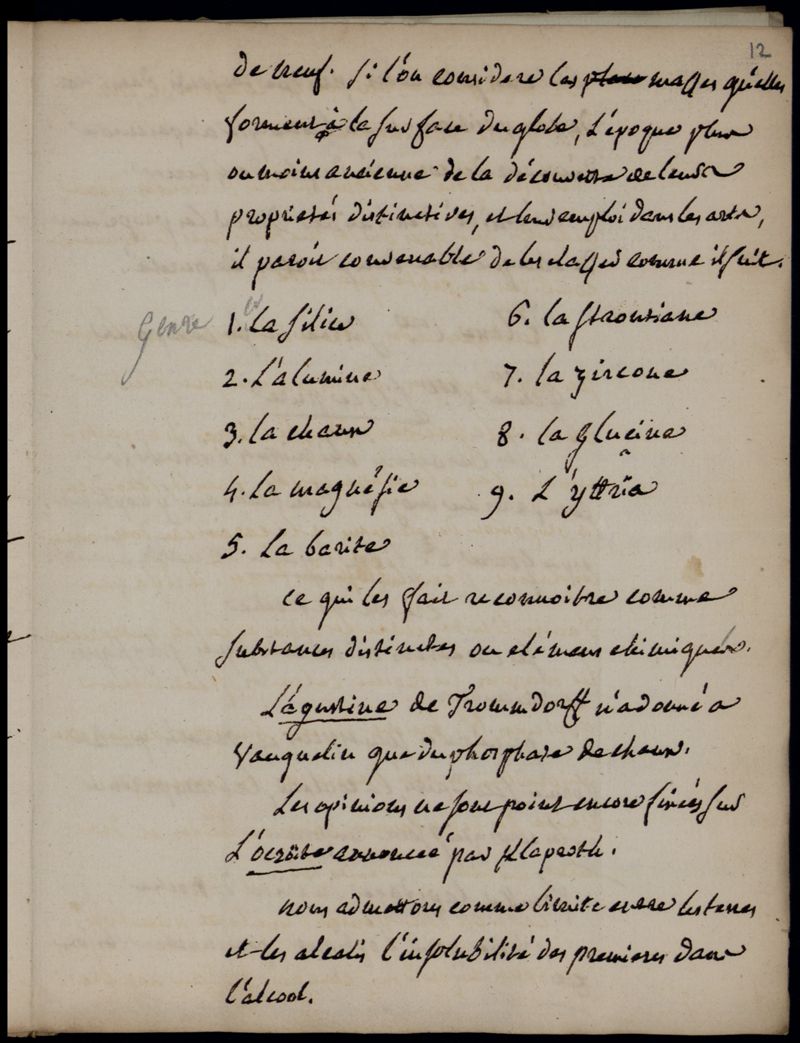 12
de neuf. Si l'on considere les masses qu'elles
forment à la surface du globe, l'époque plus
ou moins ancienne de la découverte de leurs
proprietés distinctives, et leur emploi dans les arts,
il paroit convenable de les classer comme il suit.
Genre 1. la silice
2. l'alumine
3. la chaux
4. la magnésie
5. la barite
6. la strontiane
7. la zircone
8. la glucine
9. l'yttria
ce qui les fait reconnoitre comme
substances distinctes ou elémens chimiques.
L'agustine de Trommdorff n'a donné a
Vauquelin que du phosphate de chaux.
Les opinions ne sont point encore fixées sur
L'ocroite annoncée par Klaproth.
nous admettons comme limite entre les terres
et les alcalis l'insolubilité des premieres dans
l'alcool.